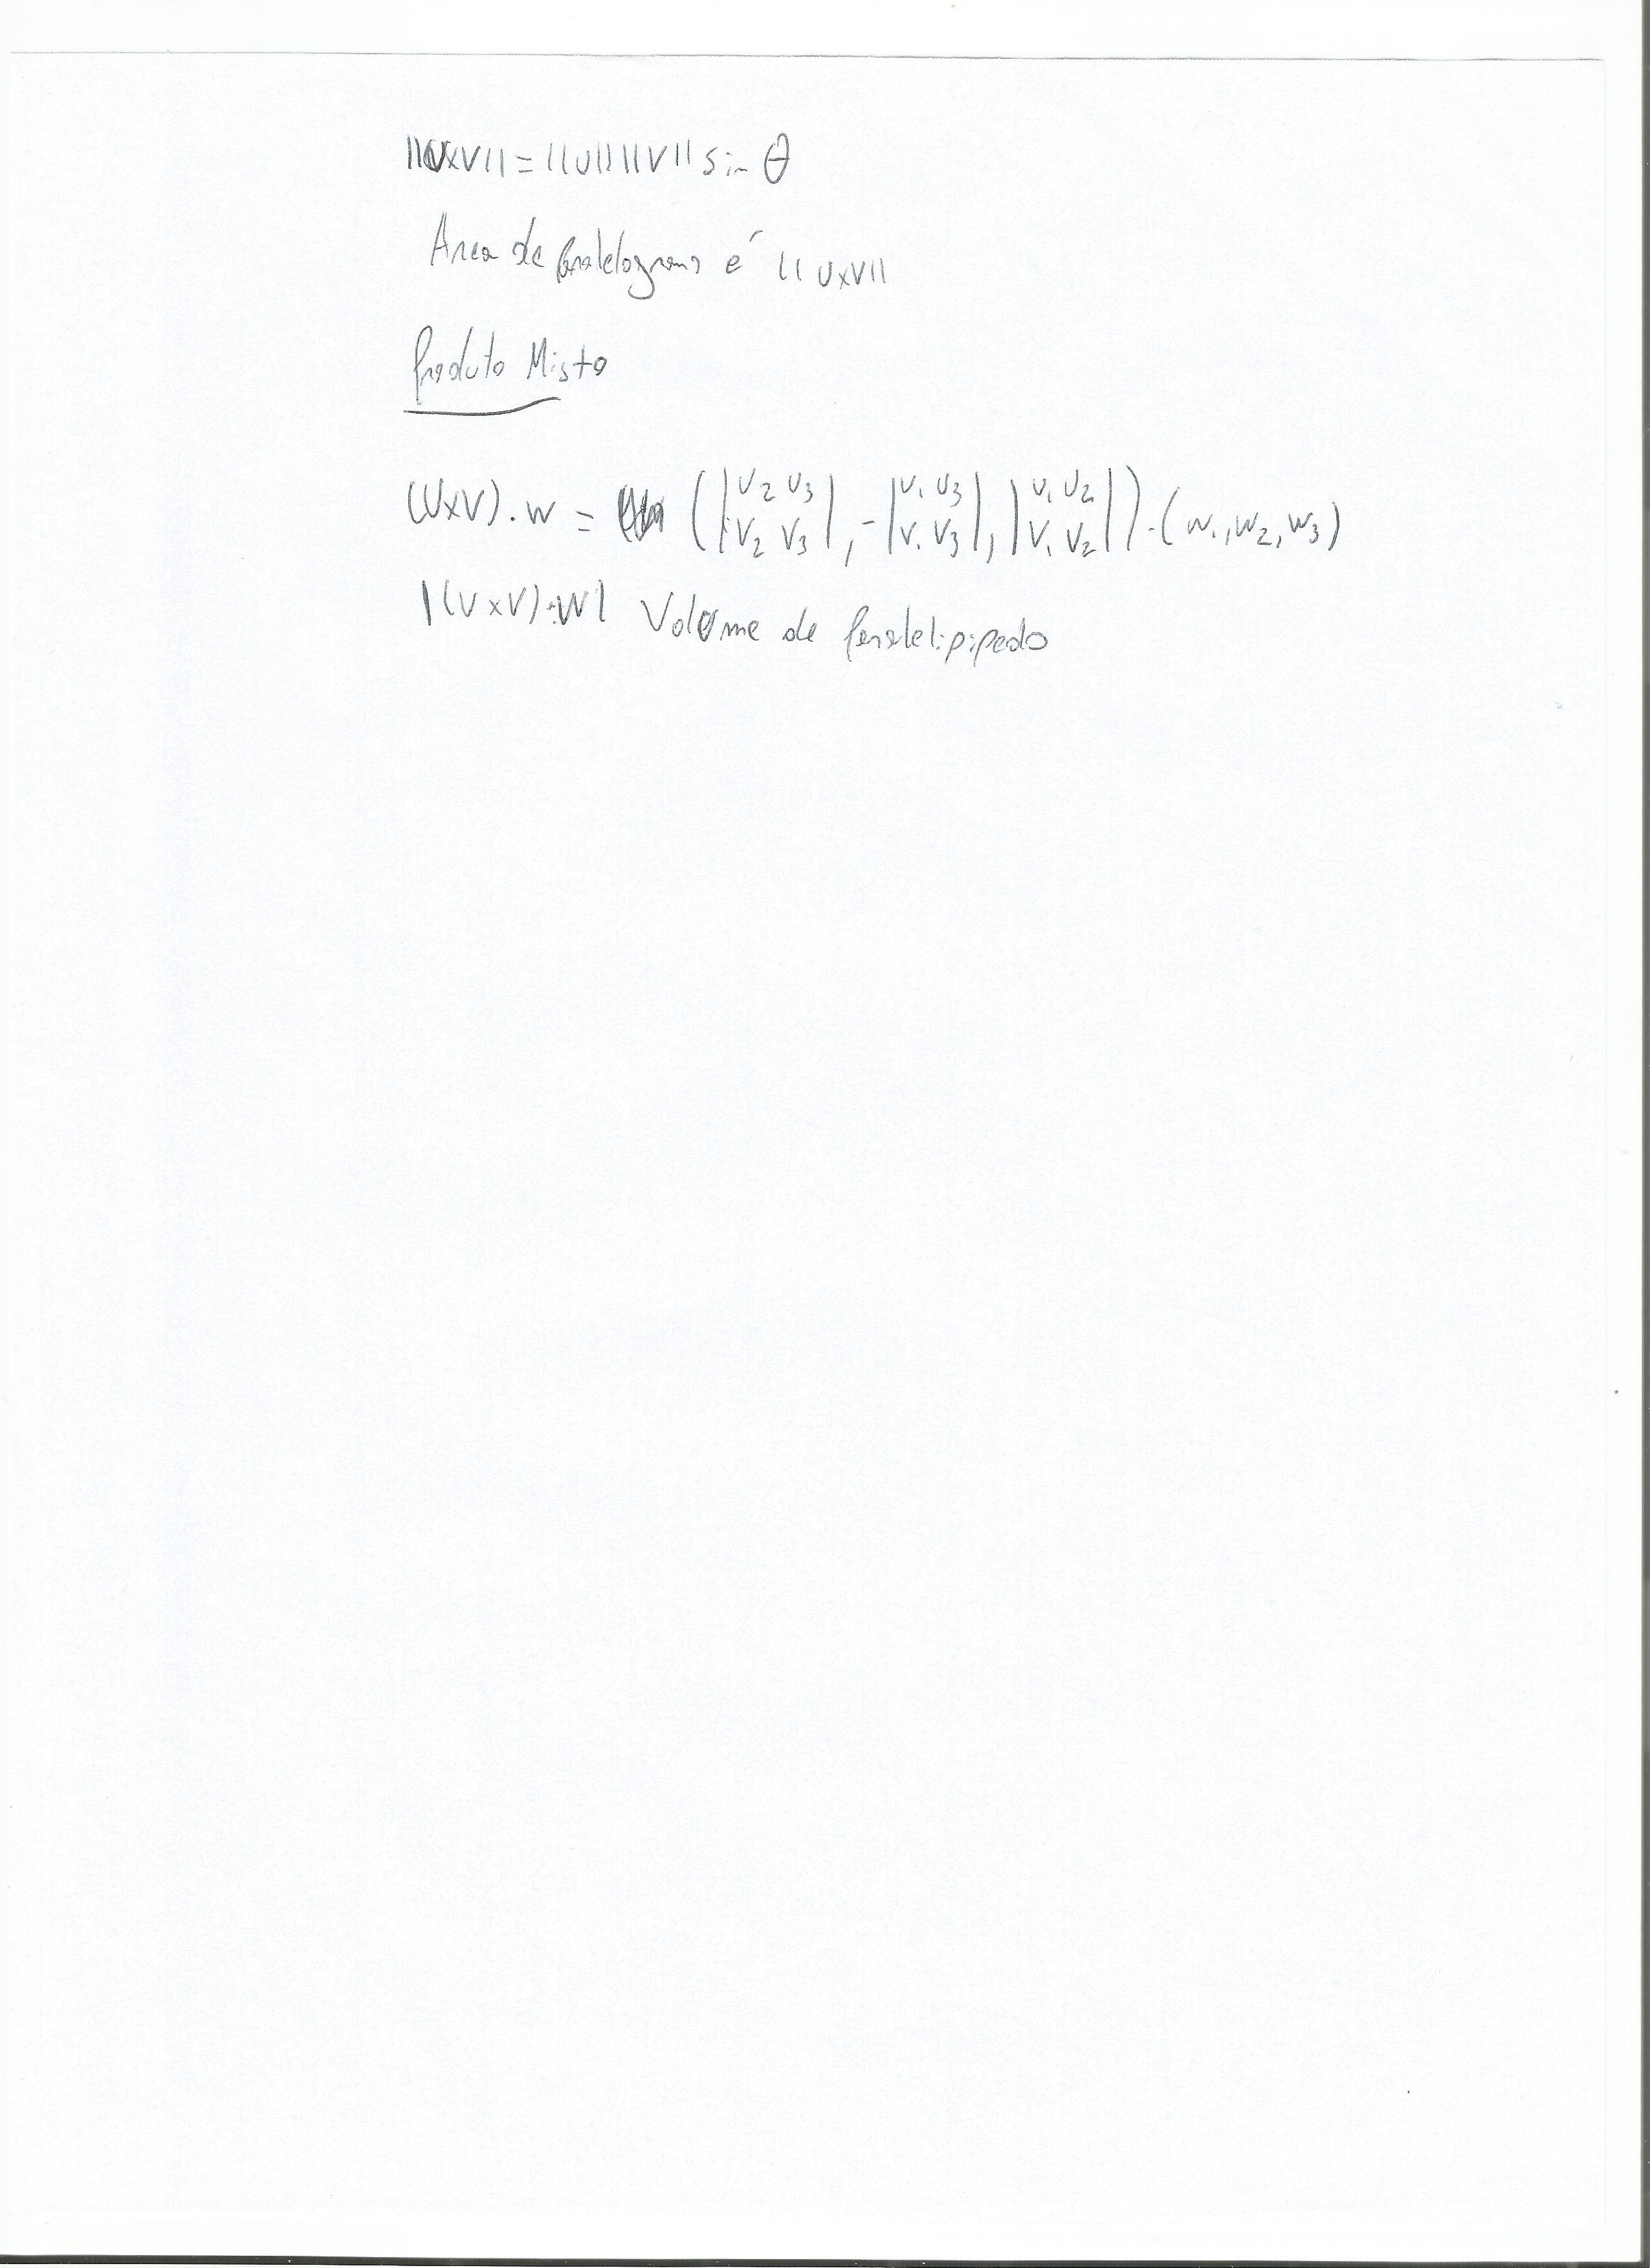 ||U×V|| = ||U|| ||V|| sin θ
Area de paralelogramo é ||U×V||
Produto Misto
(U×V) . W = ( |U2 U3; V2 V3| , - |U1 U3; V1 V3| , |U1 U2; V1 V2| ) . (W1, W2, W3)
|(U×V) . W| Volume de paralelipipedo